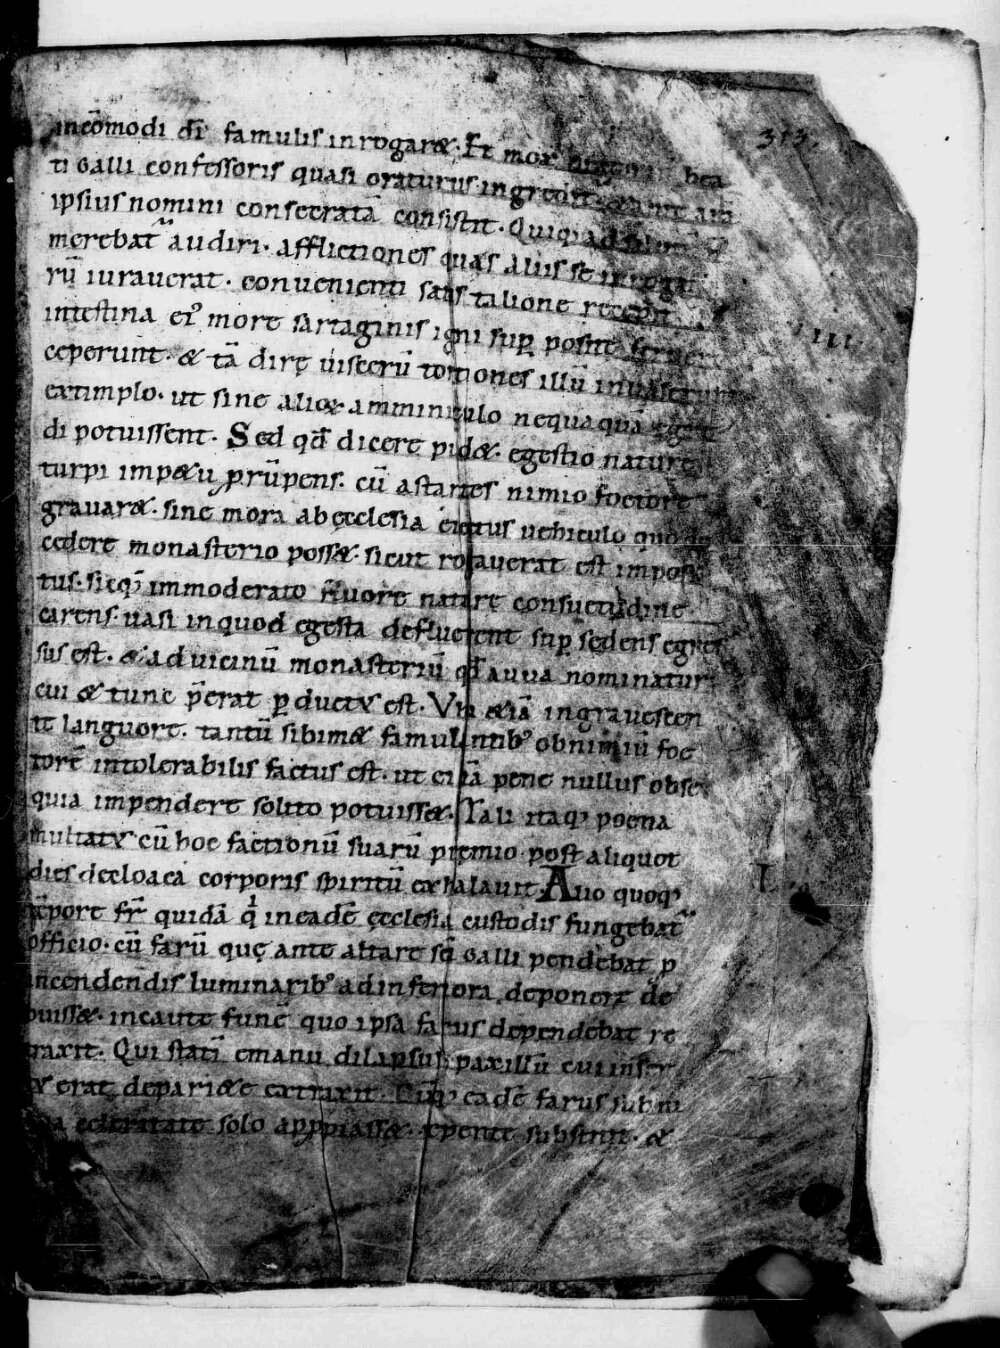 313.
incōmodi dī famulis inrogaræ. Et mox bea
ti Galli confessoris quasi oraturus ingredit̄
ipsius nomini consecratā consistit. Quiq;
merebat̄ audiri. afflictiones quas aliis se inrogatu
rū iurauerat. conuenienti satis talione recepit.
III.
intestina ei᾽ more sartaginis igni sup̱ posite feruere
ceperunt. & tā dirę uiscerū torsiones illū inuaserunt
extimplo. ut sine alicui᾽ amminiculo nequaquā
di potuissent. Sed qđ dicere pidæ. egestio naturę
turpi impetu prūpens. cū astantes nimio foetore
grauaræ. sine mora ab ęcclesia eiectus uehiculo quo
cedere monasterio possæ. sicut rogauerat est imposi
tus. sicq; immoderato naturę consuetudine
carens. uasi in quod egesta defluerent sup̱ sedens egres
sus est. & ad uicinū monasteriū qđ auua nominatur
cui & tunc p̄erat p̱ductus est. Vbi &iā ingrauescen
te languore. tantū sibimæ famulantib᾽ ob nimiū foe
torē intolerabilis factus est. ut ei iā pene nullus obse
quia impendere solito potuissæ. Tali itaq; poena
multatus cū hoc factionū suarū premio post aliquot
dies de cloaca corporis spiritū exhalauit. Alio quoq;
L
tēpore fr̄ quidā q̇ in eadē ęcclesia custodis fungebat̄
officio. cū farū quę ante altare sc̄i Galli pendebat p̱
incendendis luminarib᾽ ad inferiora deponere de
buissæ. incaute funē quo ipsa farus dependebat re
traxit. Qui statī e manu dilapsus paxillū cui inser
tus erat de pariæe extraxit. Cūq; eadē farus subni
a celeritate solo app̱piassæ. repente substitit. &